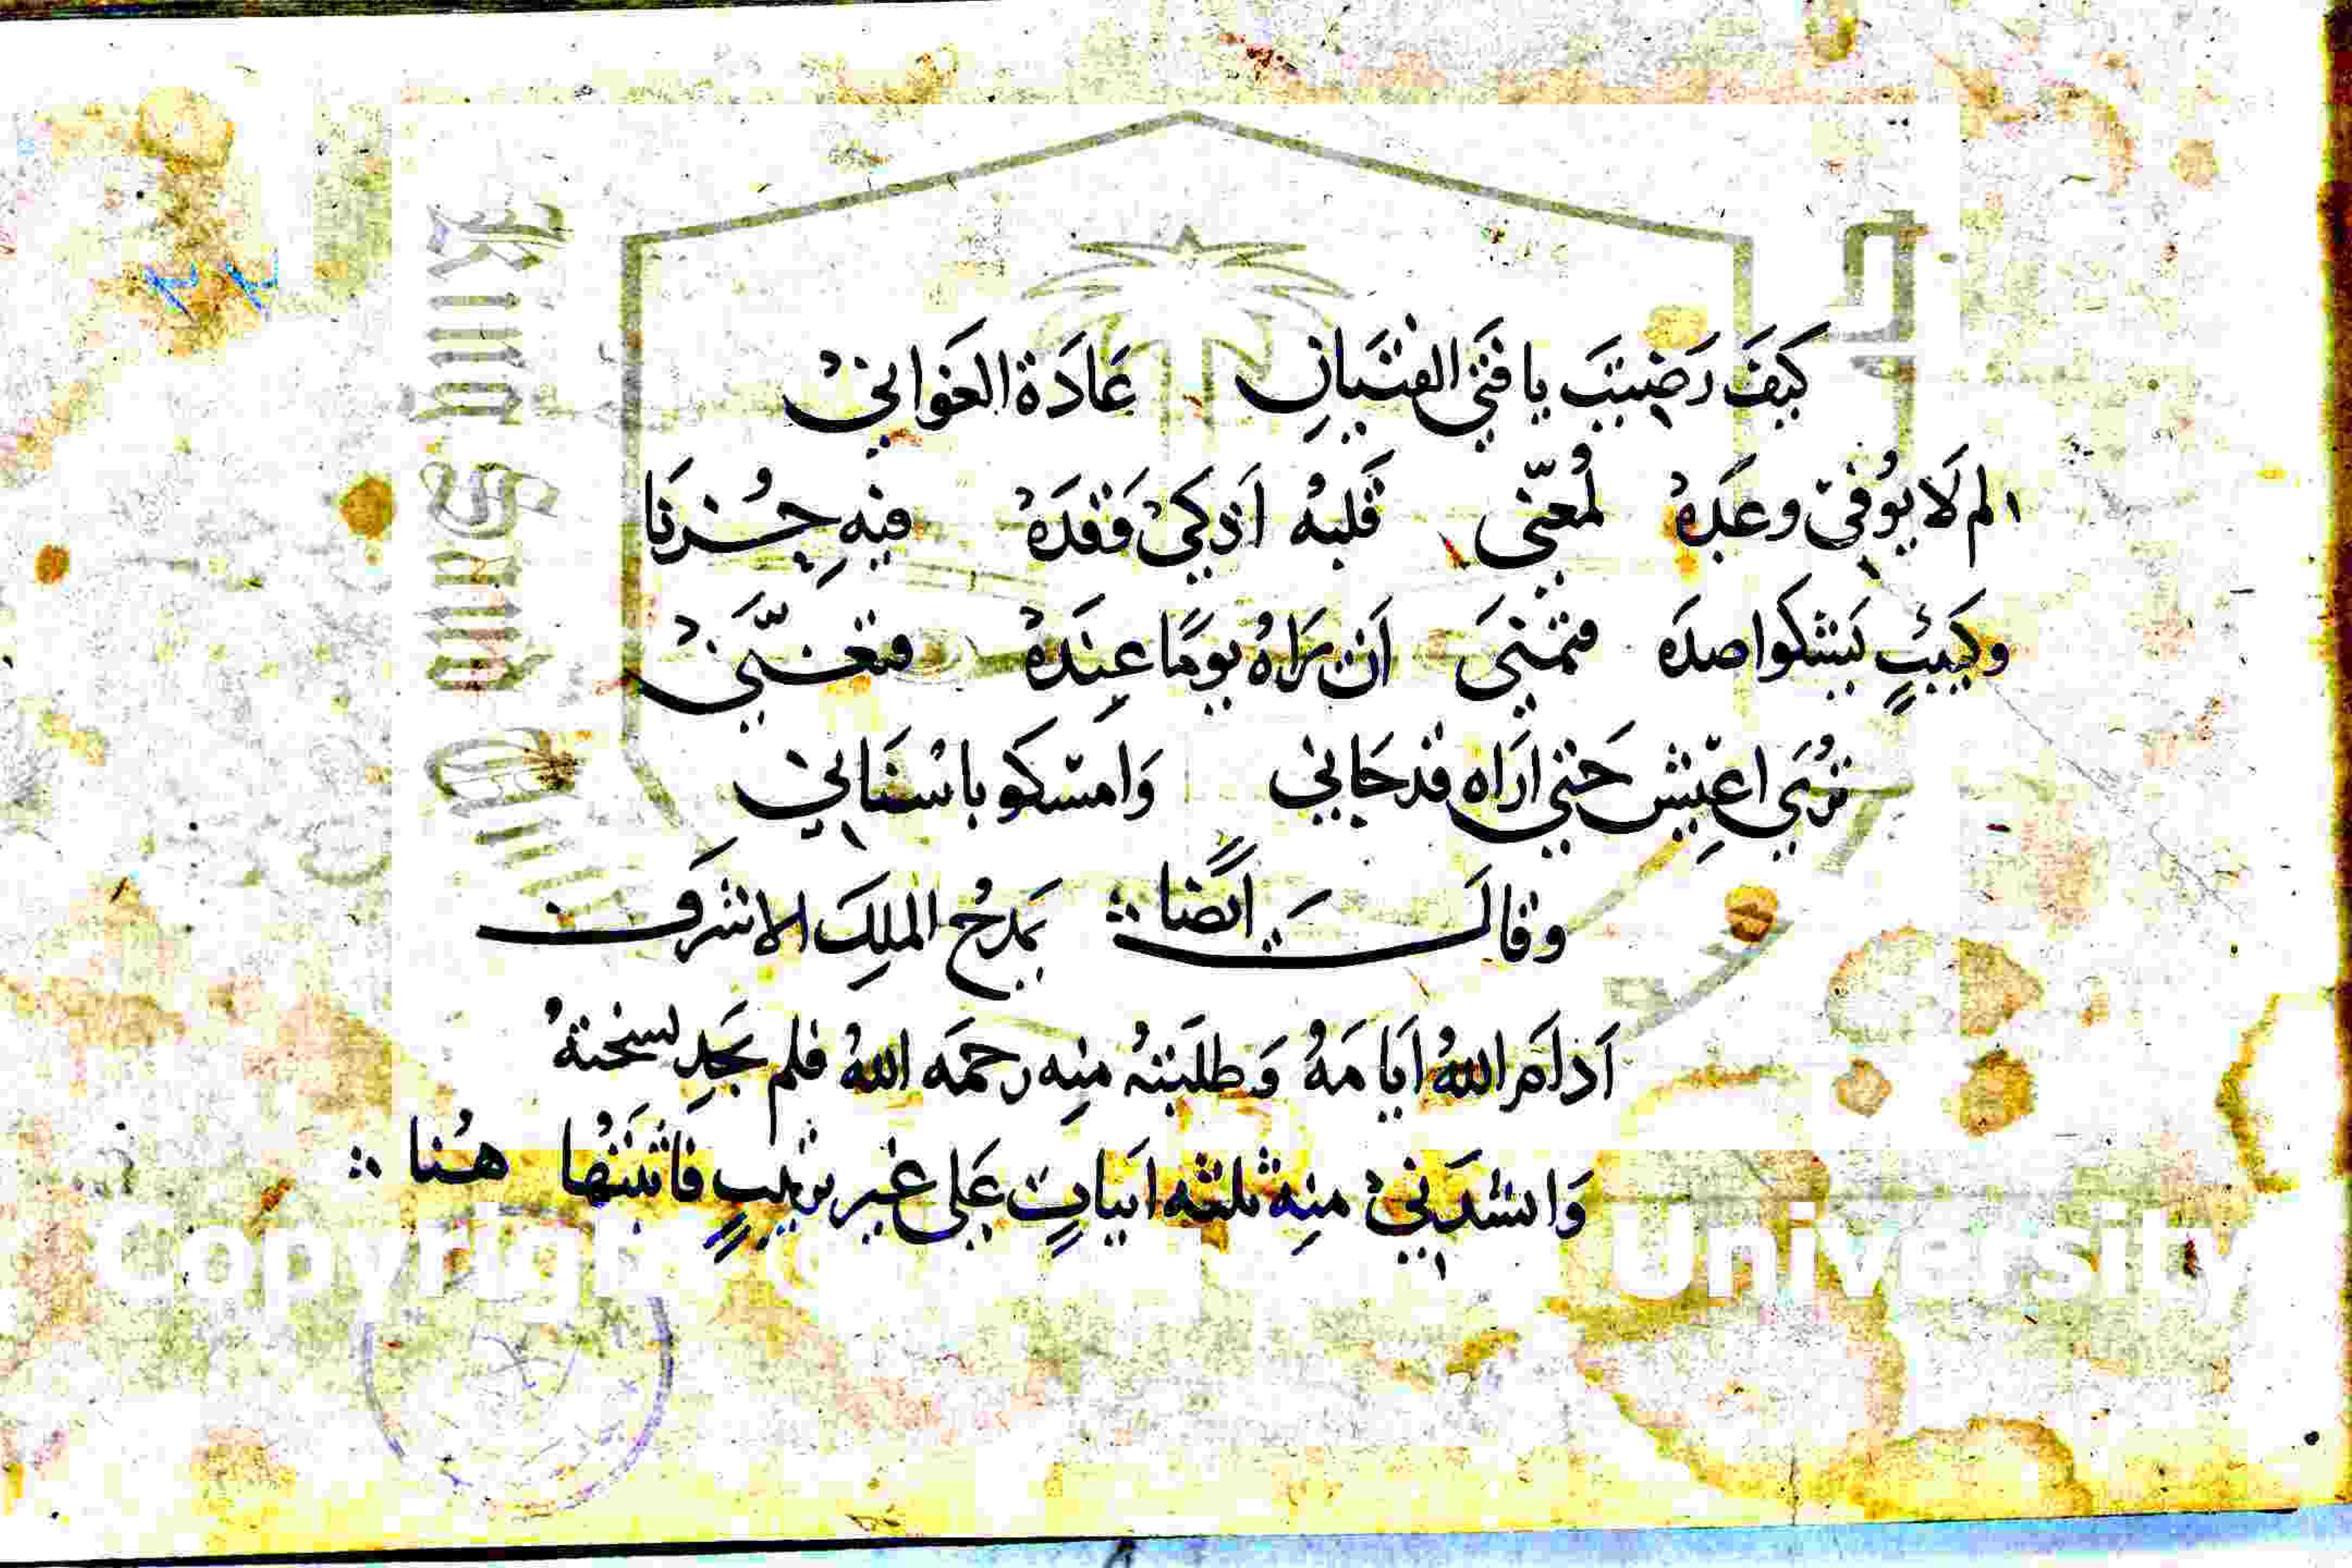 ٢٢
كَيفَ رَضيتَ يا فتَى الفتيَانِ عَادَة الغَوانيْ
الم لَا يوُفيّ وعَدِهُ لمُعنّى قَلبهُ اَذكيْ وَقدَهْ فيْهِ حِـُـزنَا
وكَئيبٍ يَشكوا صدَه فتمنيَ اَن يَرَاهُ يومًا عِندَهْ فتغـنّيَ
تُرَي اعيِش حَتي ارَاه قد جَاني وَامسّكو باسْنَانيْ
وقالَـــتَ اَيضًا يَمدحُ الملِكَ الاشرَفــــ
اَدَامَ اللهُ اَيامَهُ وَطلَبتهُ منِه رحمَه الله فلم يَجدِ نسختهُ
وَانشدَنيْ منِه ثلثه ابيَاتٍ عَلي غَير ترتيبٍ فَاثبَتهُا هُـنا
King Saud
Copyright © University